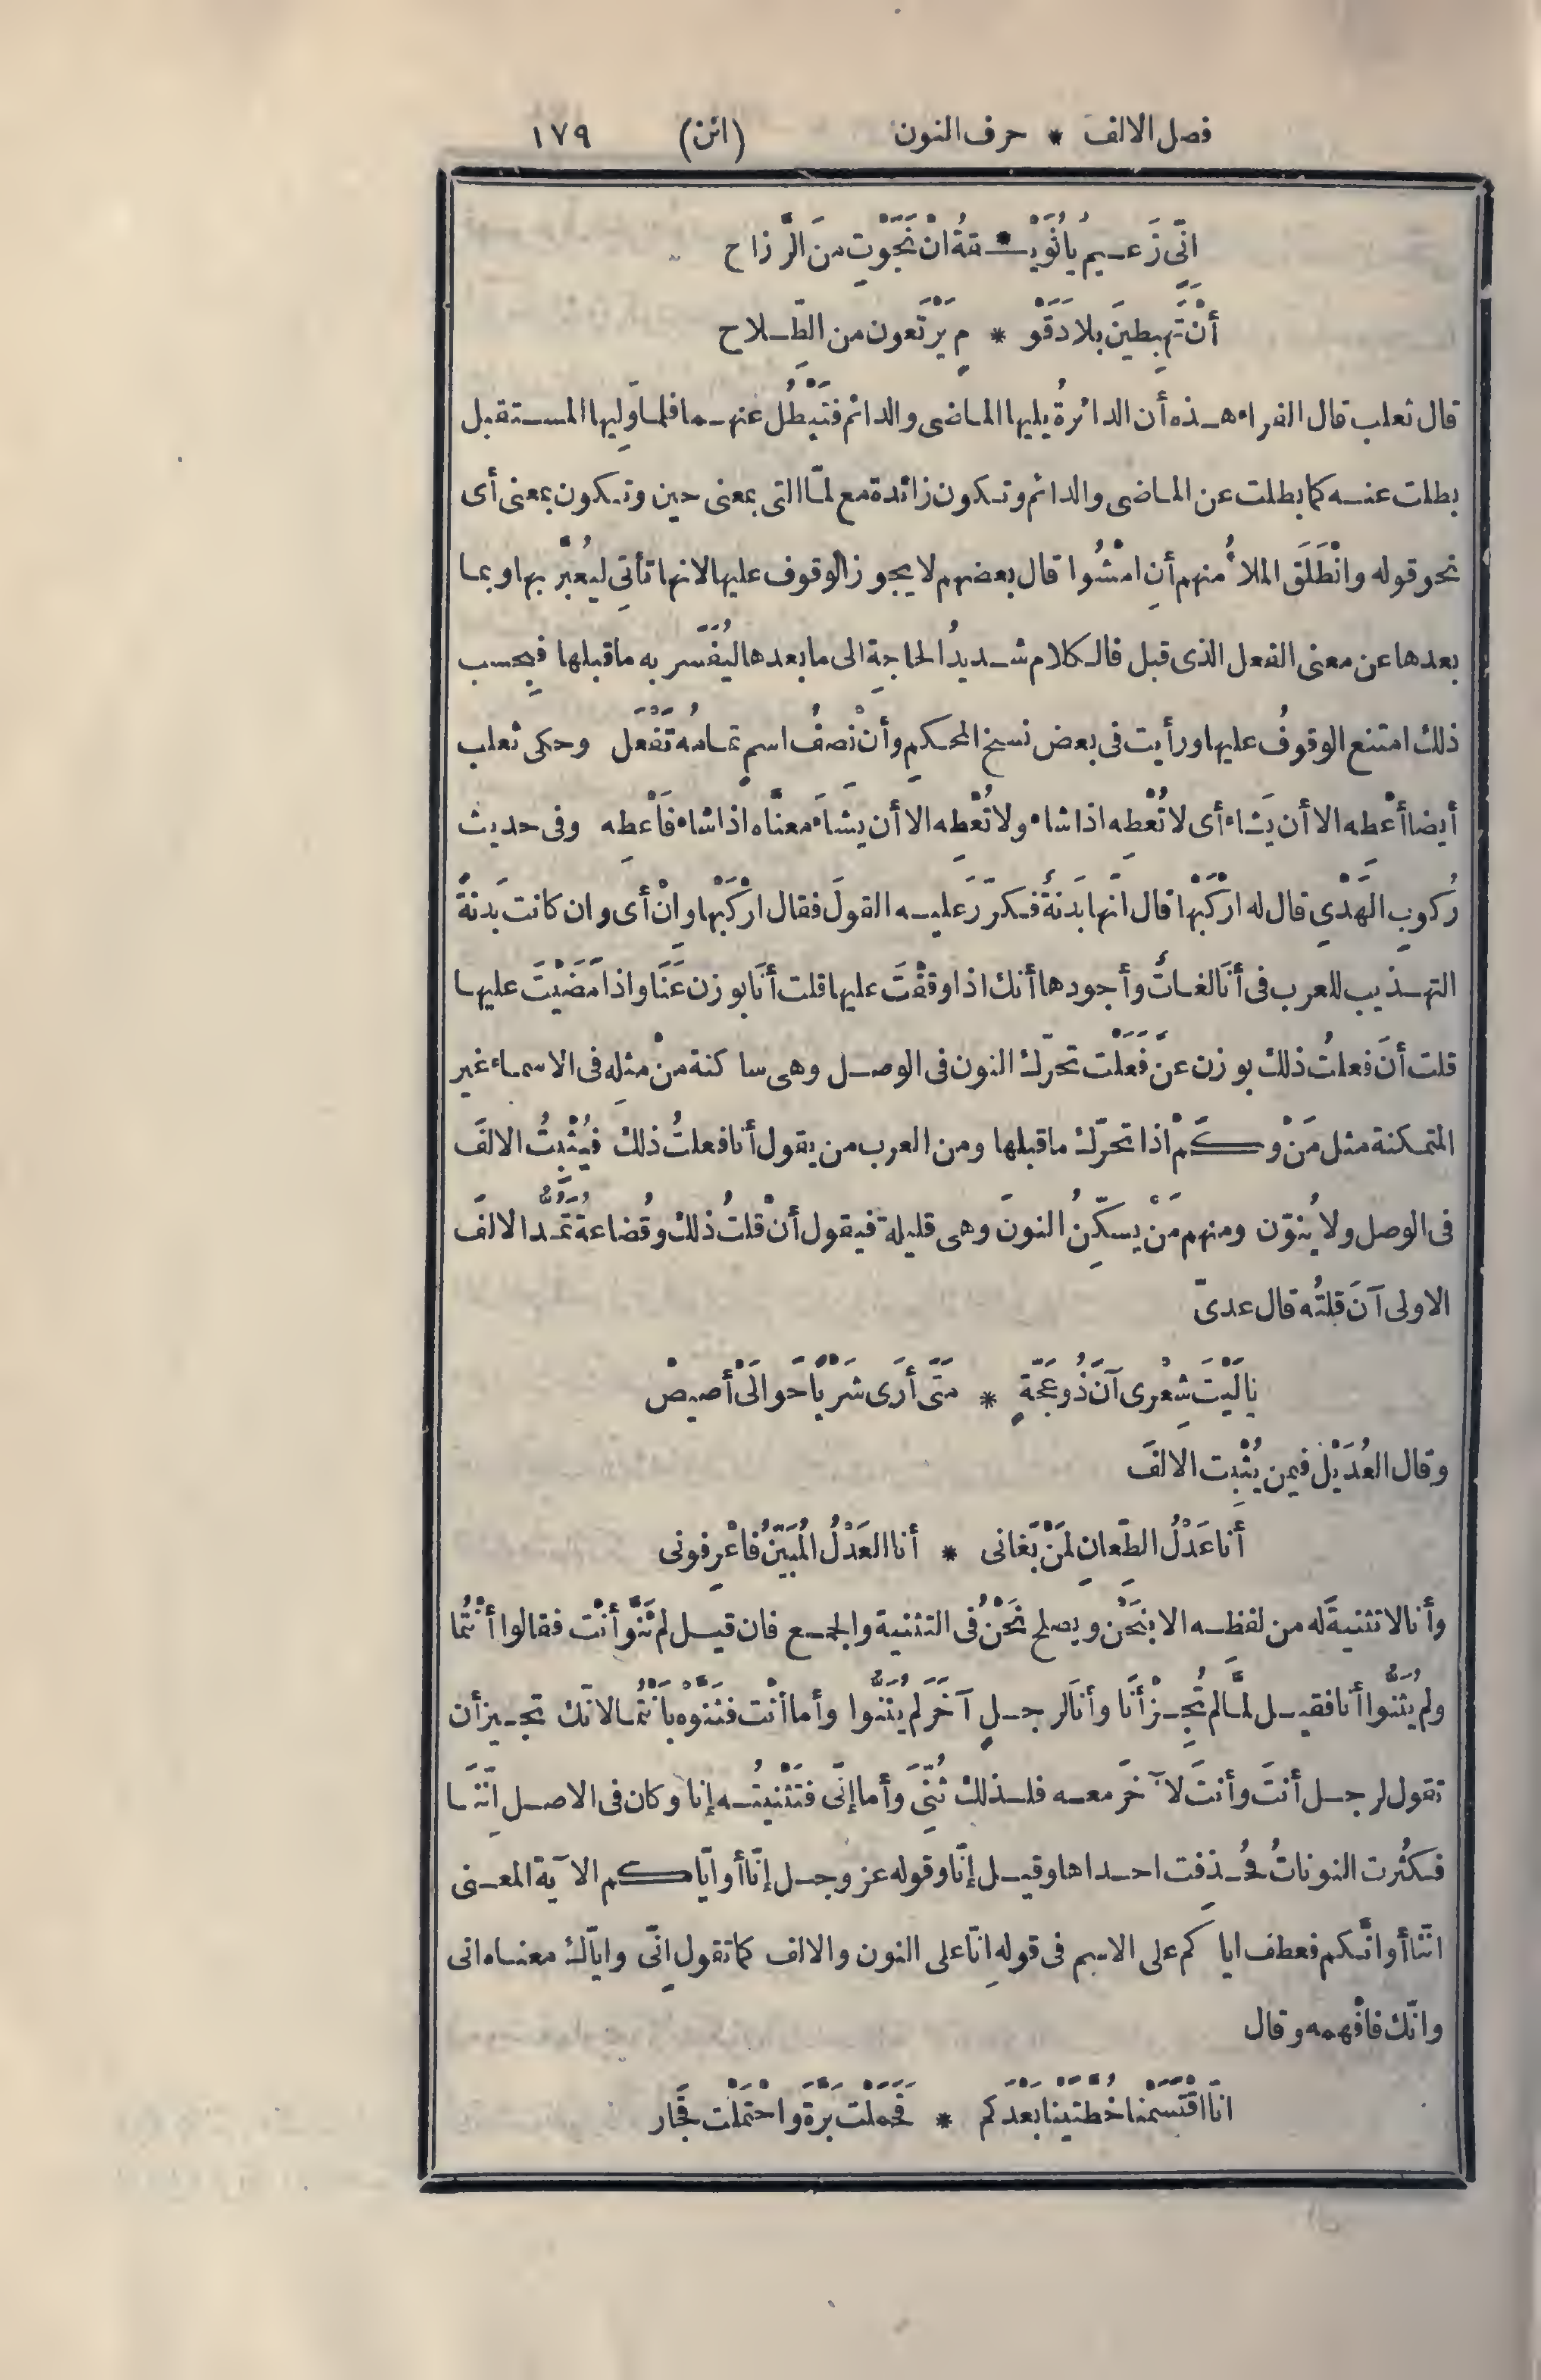 فصل الالف * حرف النون (انن) ١٧٩
انّى زَعيمٌ يا نُوَيْـ * ـقةُ انْ نَجَوْتِ منَ الرَّزاح
أنْ تَهْبِطينَ بلادَ قَوْ * مٍ يَرْتَعون من الطِّلاح
قال ثعلب قال الفراء هذه أن الدائرةُ يليها الماضى والدائم فتَبْطُل عنهما فلما وَلِيها المستقبل
بطلت عنه كما بطلت عن الماضى والدائم وتكون زائدة مع لمّا التى بمعنى حين وتكون بمعنى أى
نحو قوله وانْطَلَق الملأُ منهم أنِ امْشُوا قال بعضهم لا يجوز الوقوف عليها لانها تأتى ليُعبَّر بها وبما
بعدها عن معنى الفعل الذى قبل فالكلام شديدُ الحاجةِ الى ما بعدها ليُفَسَّر به ما قبلها فبِحسب
ذلك امتنع الوقوفُ عليها ورأيت فى بعض نسخ المحكم وأنْ نصفُ اسمٍ تمامُه تَفْعَل وحكى ثعلب
أيضا أعْطه الا أن يَشاء أى لا تُعْطِه اذا شاء ولا تُعْطِه الا أن يشاءَ معناه اذا شاء فَأعْطِه وفى حديث
رُكوبِ الهَدْىِ قال له ارْكَبْها قال انّها بَدنةٌ فكرّر عليه القولَ فقال ارْكَبْها وانْ أى وان كانت بَدنةً
التهذيب للعرب فى أنَا لغاتٌ وأجودها أنك اذا وقَفْتَ عليها قلت أنَا بوزن عَنَا واذا مَضَيْتَ عليها
قلت أنَ فعلتُ ذلك بوزن عَنَ فَعَلْت تحرّك النون فى الوصل وهى ساكنة منْ مثلِه فى الاسماء غير
المتمكنة مثل مَنْ وكَمْ اذا تحرّك ما قبلها ومن العرب من يقول أنا فعلتُ ذلك فيُثْبِتُ الالفَ
فى الوصل ولا يُنوّن ومنهم مَنْ يسكِّنُ النونَ وهى قليلة فيقول أنْ قلتُ ذلك وقُضاعةُ تمُدُّ الالفَ
الاولى آنَ قلتُه قال عدىّ
يا لَيْتَ شِعْرى آنَ ذُو عَجّةٍ * متَى أرَى شَرْبًا حَوالَىْ أصيصْ
وقال العُدَيْل فيمن يُثْبِت الالفَ
أنا عَدْلُ الطِّعانِ لمَنْ بَغانى * أنا العَدْلُ المُبَيّنُ فاعْرِفونى
وأنا لا تثنيةَ له من لفظه الا بنَحْن ويصلح نَحْنُ فى التثنية والجمع فان قيل لم ثنَّوا أنْت فقالوا أنْتُما
ولم يُثَنُّوا أنا فقيل لمَّا لم تُجِزْ أنَا وأنَا لرجلٍ آخَرَ لم يُثَنُّوا وأما أنْت فثَنّوه بأنْتُما لانّك تجيز أن
تقول لرجل أنتَ وأنتَ لآخَرَ معه فلذلك ثُنّىَ وأما إنّى فتَثْنيتُه إنا وكان فى الاصل إنَّنا
فكثُرت النوناتُ فحُذفت احداها وقيل إنّا وقوله عز وجل إنّا أو ايّاكم الآية المعنى
انّنا أو انّكم فعطف اياكم على الاسم فى قوله انّا على النون والالف كما تقول انّى وايّاك معناه انى
وانّك فافْهمه وقال
انّا اقْتَسَمْنا خُطّتَيْنا بَعْدَكم * فحَمَلْت بَرّةَ واحْتَمَلْت فجَار